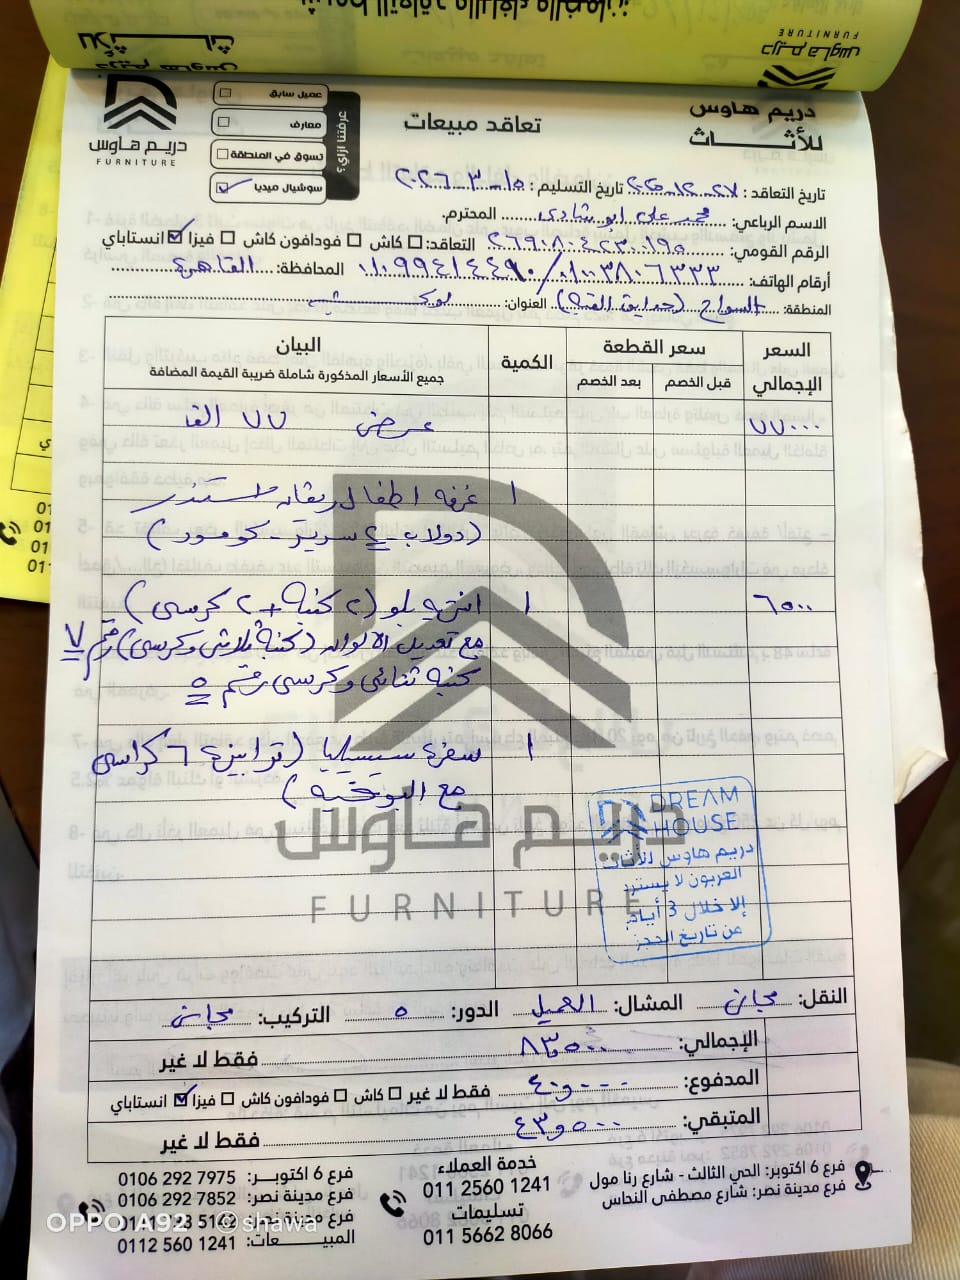 دريم هاوس
FURNITURE
دريم هاوس
للأثـــاث
تعاقد مبيعات
عرفتنا ازاي؟
عميل سابق
معارف
تسوق في المنطقة
سوشيال ميديا
دريم هاوس
FURNITURE
تاريخ التعاقد : ٢٧-١٢-٢٠٢٥ تاريخ التسليم : ١٥-٣-٢٠٢٦
الاسم الرباعي: محمد على ابو شادى المحترم.
الرقم القومي: ٢٦٩٠٨٠٤٢٣٠٠١٩٥ التعاقد: كاش فودافون كاش فيزا انستاباي
أرقام الهاتف: ٠١٠٠٣٨٠٦٣٣٣ / ٠١٠٩٩٤١٤٤٩٠ المحافظة: القاهرة
المنطقة: السواح (حدايق القبة) العنوان: لوكيشن
السعر الإجمالي سعر القطعة قبل الخصم بعد الخصم الكمية البيان
جميع الأسعار المذكورة شاملة ضريبة القيمة المضافة
٧٧٠٠٠ عرض ٧٧ الفا
١ غرفه اطفال ريقان
(دولاب - ٢ سرير - كومود)
٦٥٠٠ ١ انتريه بلو (٢ كنبة + ٢ كرسى)
مع تعديل الالوان (كنبة ثلاثى وكرسى) رقم ٧
كنبه ثنائى وكرسى رقم ٥
١ سفرة سيسيليا (ترابيزة ٦ كراسى
مع البوفيه)
دريم هاوس
FURNITURE
DREAM
HOUSE
دريم هاوس للأثاث
العربون لا يسترد
إلا خلال 3 أيام
من تاريخ الحجز
النقل: مجانى المشال: العميل الدور: ٥ التركيب: مجانى
الإجمالي: ٨٣٥٠٠ فقط لا غير
المدفوع: ٤٠٠٠٠ فقط لا غير كاش فودافون كاش فيزا انستاباي
المتبقي: ٤٣٥٠٠ فقط لا غير
فرع 6 اكتوبر: الحي الثالث - شارع رنا مول
فرع مدينة نصر: شارع مصطفى النحاس
خدمة العملاء
011 2560 1241
تسليمات
011 5662 8066
فرع 6 اكتوبـــر: 0106 292 7975
فرع مدينة نصر: 0106 292 7852
فرع مدينة نصر: 5142
المبيـــــــعات: 0112 560 1241
OPPO A92 · © shawa